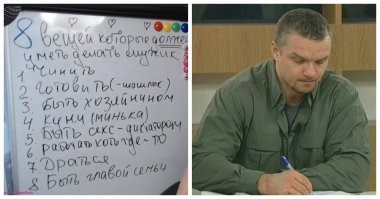 8 вещей которые должен
уметь делать мужик
1 Чинить
2 Готовить(-шашлык)
3 Быть хозяином
4 куни (минька)
5 Быть секс-диктатором
6 работать хоть где-то
7 Драться
8 Быть главой семьи